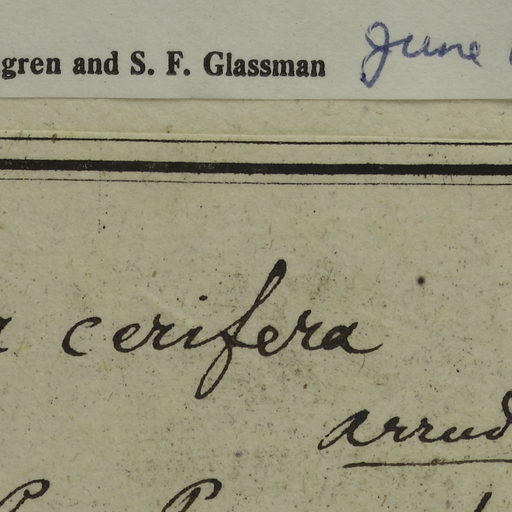 gren and S. F. Glassman June
cerifera
arrud